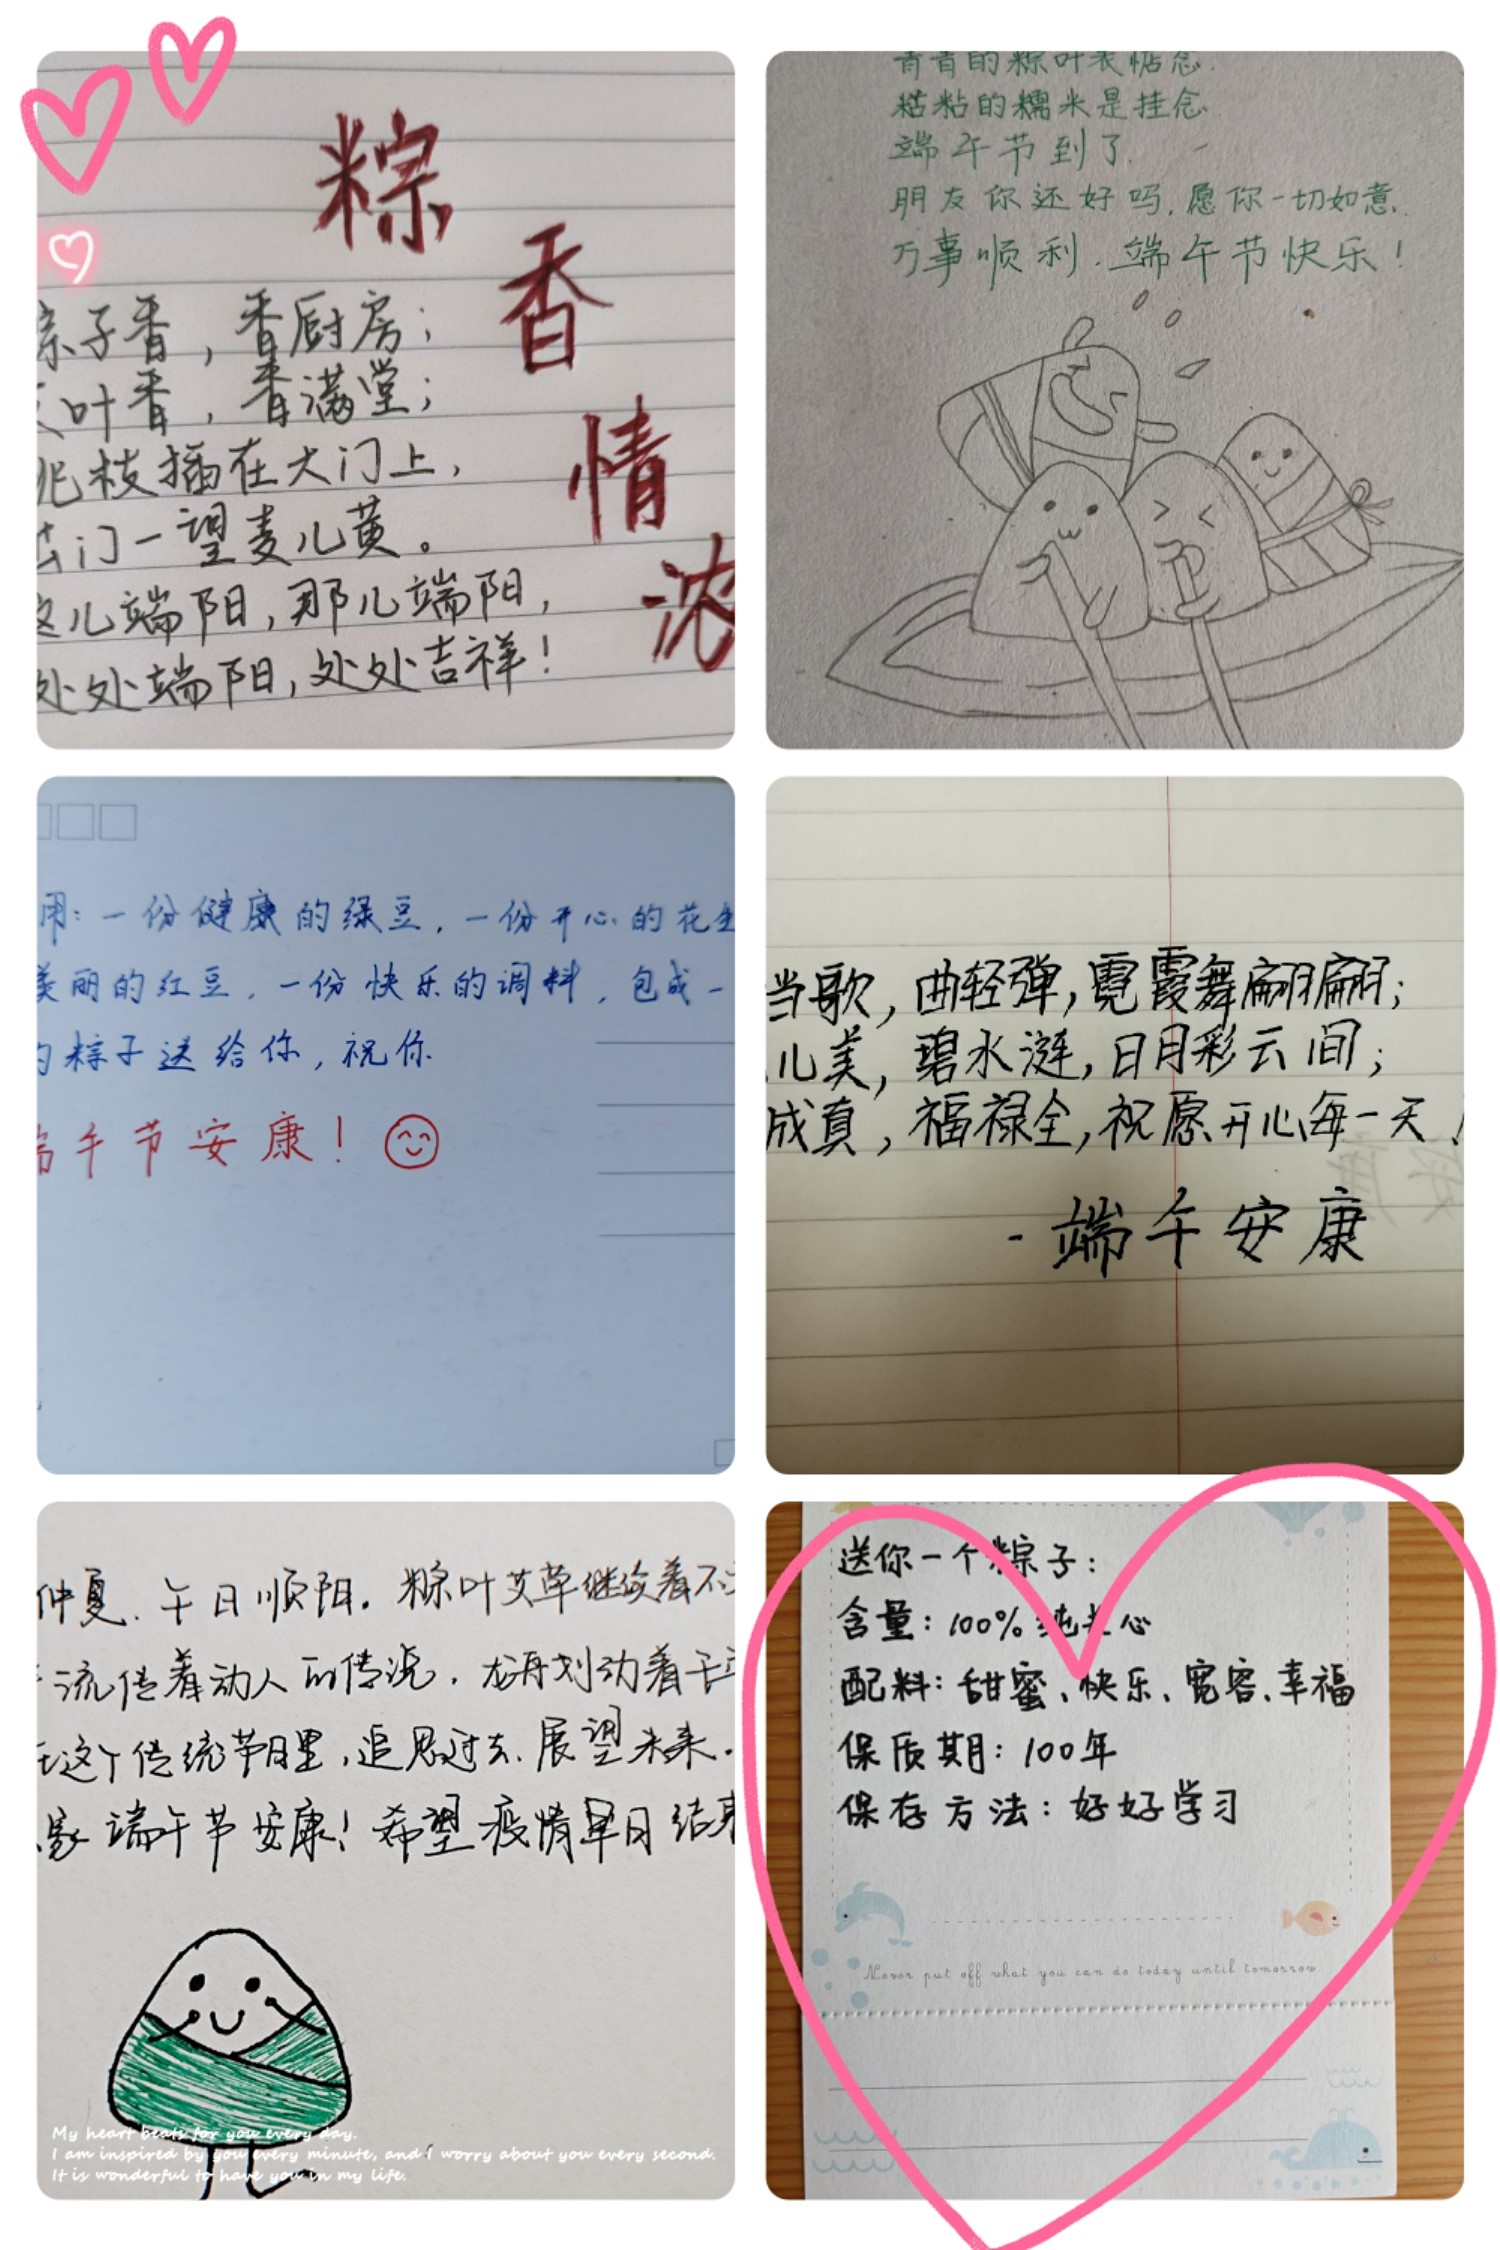 粽
香
情
浓
粽子香，香厨房；
叶香，香满堂；
枝插在大门上，
门一望麦儿黄。
这儿端阳，那儿端阳，
处处端阳，处处吉祥！
青青的粽叶表惦念.
粘粘的糯米是挂念
端午节到了.
朋友你还好吗,愿你一切如意.
万事顺利.端午节快乐！
用：一份健康的绿豆，一份开心的花生
美丽的红豆，一份快乐的调料，包成一
的粽子送给你，祝你
端午节安康！
当歌，曲轻弹，霓霞舞翩翩；
儿美，碧水涟，日月彩云间；
成真，福禄全，祝愿开心每一天！
-端午安康
仲夏、午日顺阳。粽叶艾草继续着不
流传着动人的传说，龙舟划动着千
在这个传统节日里，追思过去、展望未来。
家端午节安康！希望疫情早日结束
My heart beats for you every day.
I am inspired by you every minute, and I worry about you every second.
It is wonderful to have you in my life.
送你一个粽子：
含量：100%纯关心
配料：甜蜜、快乐、宽容、幸福
保质期：100年
保存方法：好好学习
Never put off what you can do today until tomorrow